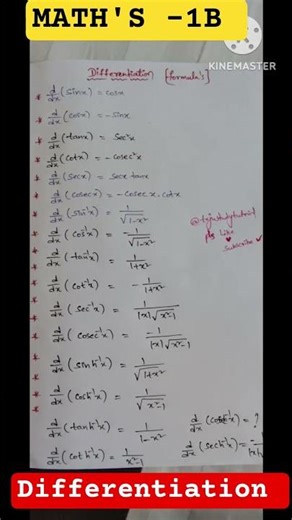 MATH'S -1B
KINEMASTER
Differentiation (formula's)
* d/dx (sinx) = cosx
* d/dx (cosx) = -sinx
* d/dx (tanx) = sec²x
* d/dx (cotx) = -cosec²x
* d/dx (secx) = secx tanx
* d/dx (cosecx) = -cosecx·cotx
* d/dx (sin⁻¹x) = 1/√1-x²
* d/dx (cos⁻¹x) = -1/√1-x²
* d/dx (tan⁻¹x) = 1/1+x²
* d/dx (cot⁻¹x) = -1/1+x²
* d/dx (sec⁻¹x) = 1/|x|√x²-1
* d/dx (cosec⁻¹x) = -1/|x|√x²-1
* d/dx (sinh⁻¹x) = 1/√1+x²
* d/dx (cosh⁻¹x) = 1/√x²-1
* d/dx (tanh⁻¹x) = 1/1-x²
d/dx (coth⁻¹x) = 1/x²-1
Like
Subscribe ✓
= ?
d/dx (sech⁻¹x) =
Differentiation